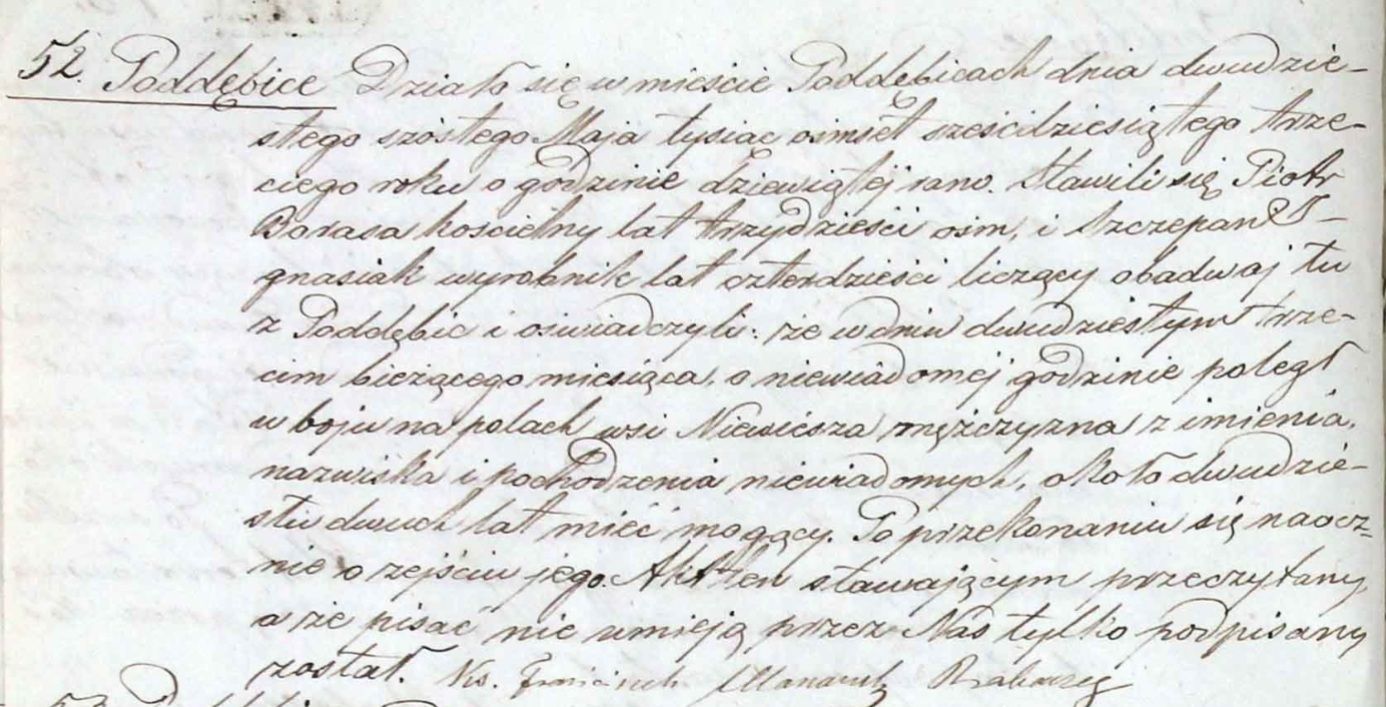 52. Poddębice Działo się w mieście Poddębicach dnia dwudzie-
stego szóstego Maja tysiąc ośmset sześćdziesiątego trze-
ciego roku o godzinie dziewiątej rano. Stawili się Piotr
Barasa kościelny lat trzydzieści ośm, i Szczepan I-
gnasiak wyrobnik lat czterdzieści liczący obadwaj tu
z Poddębic i oświadczyli: że w dniu dwudziestym trze-
cim bieżącego miesiąca, o niewiadomej godzinie poległ
w boju na polach wsi Niewiesza mężczyzna z imienia,
nazwiska i pochodzenia niewiadomych, około dwudzie-
stu dwuch lat mieć mogący. Po przekonaniu się naocz-
nie o zejściu jego. Akt ten stawającym przeczytany,
a że pisać nie umieją przez Nas tylko podpisany
został. Ks. Franciszek
53.